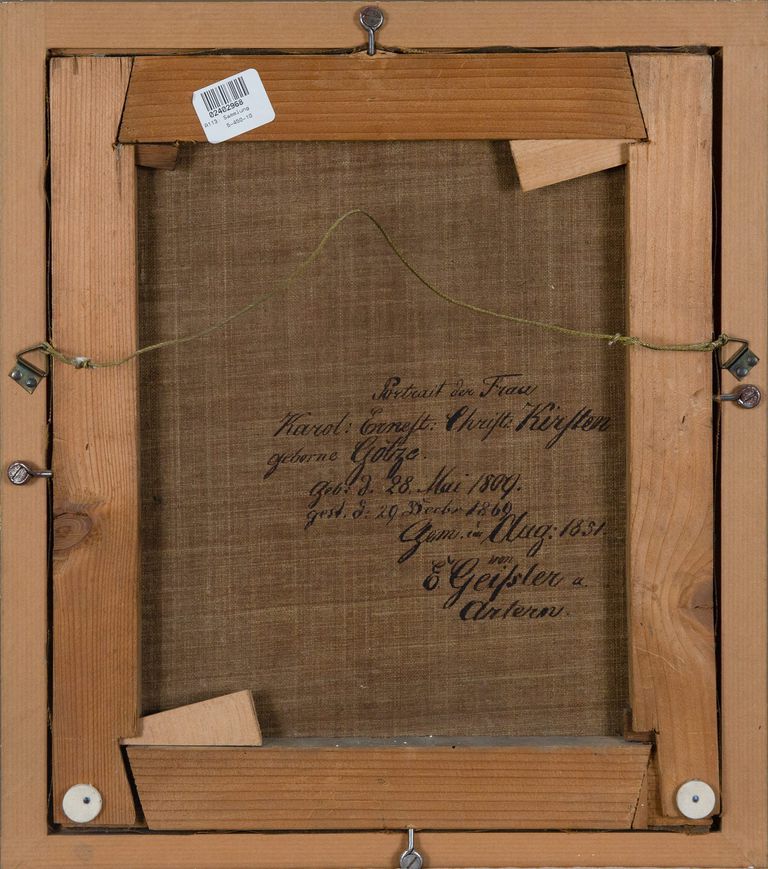 02402968
A113: Sammlung
S-450-10
Portrait der Frau
Karol: Ernest: Christ: Kirsten
geborne Götze.
geb: d. 28. Mai 1809.
gest. d. 29 Decbr 1869
Gem. im Aug: 1851.
von
E Geißler a.
Artern.